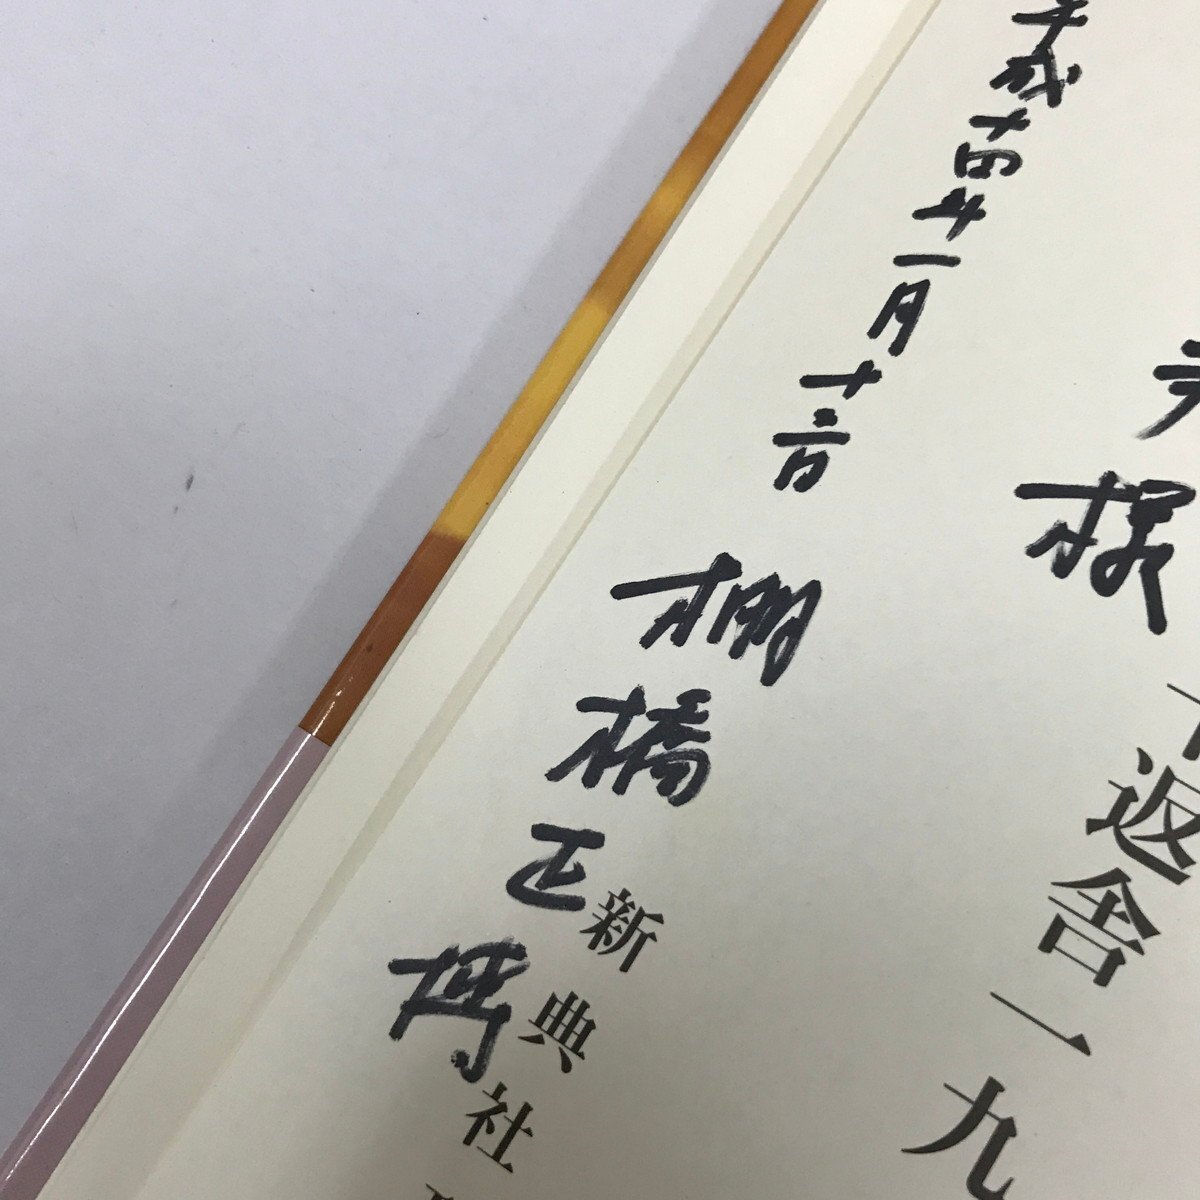 様
返舎一九
平成十四年一月十三日
棚橋正博
新典社